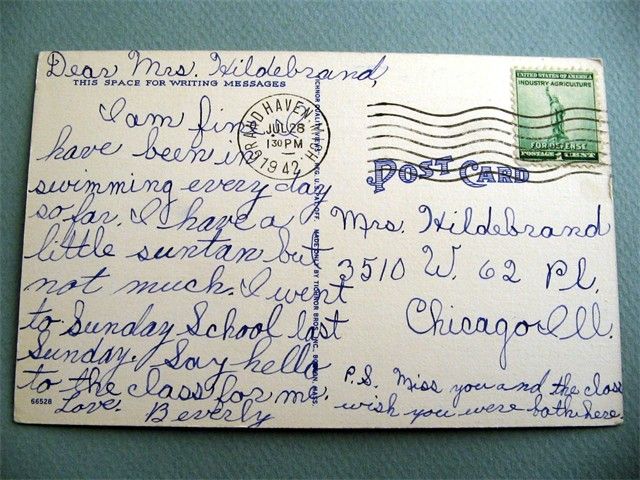 Dear Mrs. Hildebrand,
THIS SPACE FOR WRITING MESSAGES
I am fine. I
have been in
swimming every day
so far. I have a
little suntan but
not much. I went
to Sunday School last
Sunday. Say hello
to the class for me.
Love. Beverly
66528
GRAND HAVEN, MICH
JUL 28
130 PM
1942
MADE ONLY BY TICHNOR BROS., INC., BOSTON, MASS.
UNITED STATES OF AMERICA
INDUSTRY-AGRICULTURE
FOR DEFENSE
POSTAGE 1 CENT
POST CARD
Mrs. Hildebrand
3510 W. 62 Pl.
Chicago Ill.
P.S. Miss you and the class
wish you were both here.